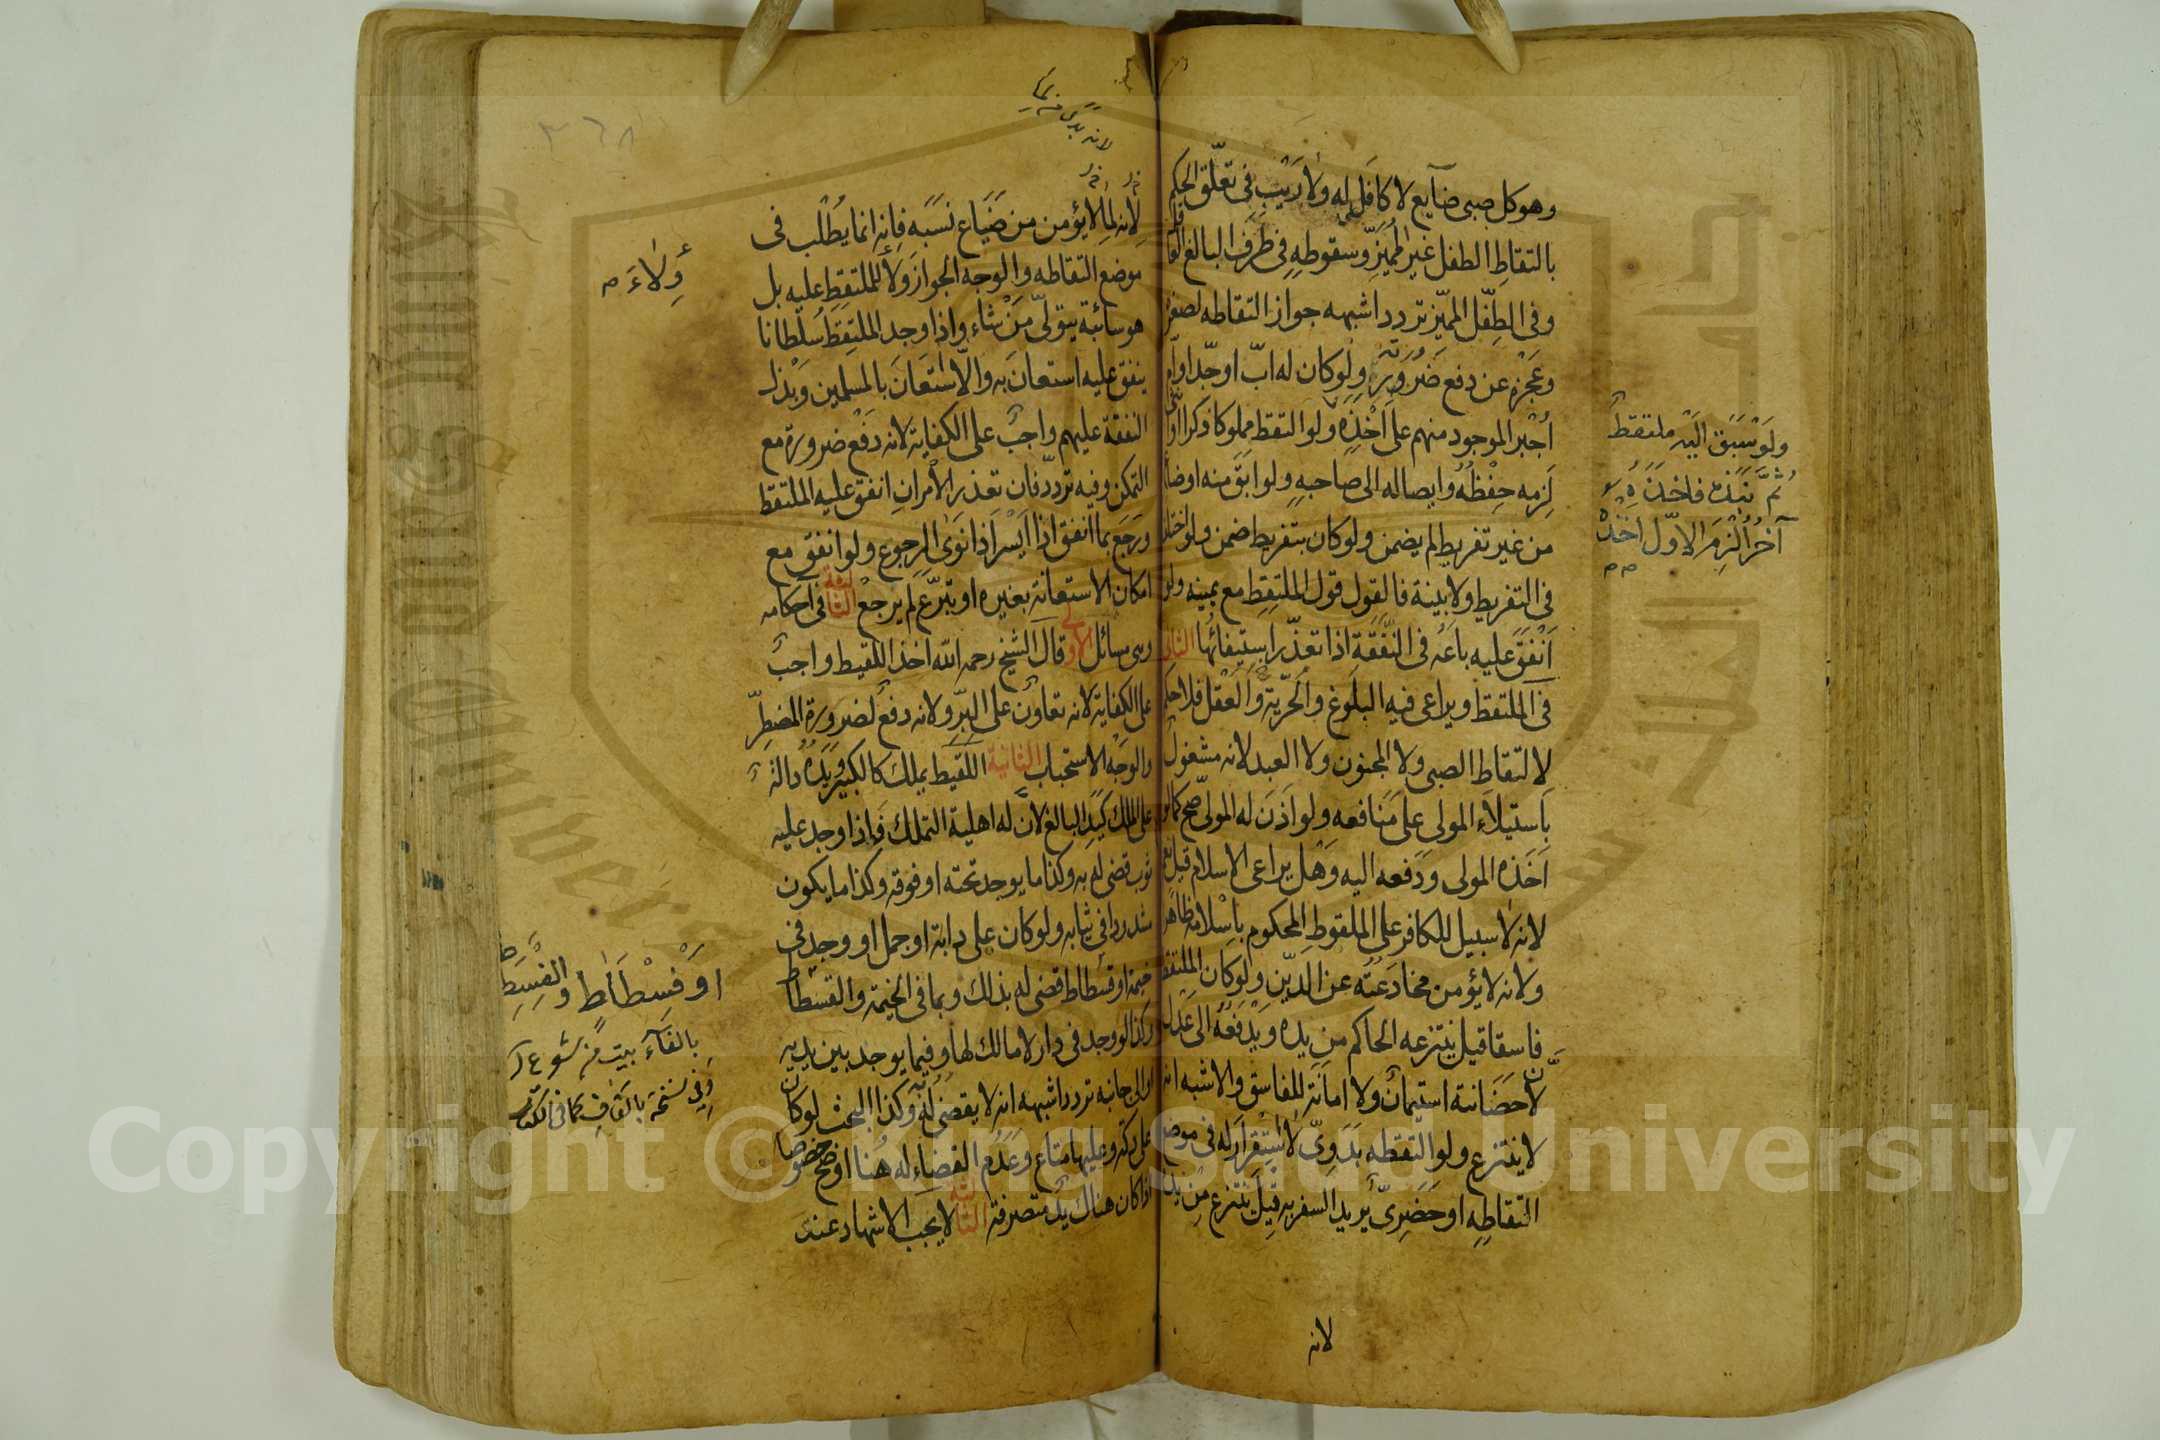 وهو كل صبى ضآيع لا كافل له ولا ريب فى تعلّق الحكم
بالتقاط الطفل غير المميّز وسقوطه فى طرف البالغ العا
وفى الطفل المميّز تردد اشبهه جواز التقاطه لصغره
وعجزه عن دفع ضرورته ولو كان له اب او جدّ او ام
اجبر الموجود منهم على اخذه ولو التقط مملوكا ذكرا او
لزمه حفظه وايصاله الى صاحبه ولو ابق منه او ضاع
من غير تفريط لم يضمن ولو كان بتفريط ضمن ولو اختلفا
فى التفريط ولا بينة فالقول قول الملتقط مع يمينه ولو
انفق عليه باعه فى النفقة اذا تعذّر استيفائها الثانى
فى الملتقط ويراعى فيه البلوغ والحرية والعقل فلا حكم
لالتقاط الصبى ولا المجنون ولا العبد لانه مشغول
باستيلآء المولى على منافعه ولو اذن له المولى صح كما لو
اخذه المولى ودفعه اليه وهل يراعى الاسلام قيل نعم
لانه لا سبيل للكافر على الملقوط المحكوم باسلامه ظاهرا
ولانه لا يؤمن مخادعته عن الدّين ولو كان الملتقط
فاسقا قيل ينتزعه الحاكم من يده ويدفعه الى عدل
لان حضانته استيمان ولا امانة للفاسق والاشبه انه
لا ينتزع ولو التقطه بدوىّ لا استقرار له فى موضع
التقاطه او حضرىّ يريد السفر به قيل ينتزع من يده
لانه
ولو سبق اليه ملتقط
ثمّ نبذه فاخذه
آخر الزم الاوّل اخذه
٣٦٨
لانه لما لا يؤمن من ضياع نسبه فانه انما يطلب فى
موضع التقاطه والوجه الجواز ولا للملتقط عليه بل
هو سائبة يتولّى من شاء واذا وجد الملتقط سلطانا
ينفق عليه استعان به والّا استعان بالمسلمين وبذل
النفقة عليهم واجب على الكفاية لانه دفع ضرورة مع
التمكن وفيه تردّد فان تعذر الامران انفق عليه الملتقط
ورجع بما انفق اذا ايسر اذا نوى الرجوع ولو انفق مع
امكان الاستعانة بغيره او تبرّع لم يرجع الثالث فى احكامه
وهى مسائل الاولى قال الشيخ رحمه الله اخذ اللقيط واجب
على الكفاية لانه تعاون على البرّ ولانه دفع لضرورة المضطرّ
والوجه الاستحباب الثانية اللقيط يملك كالكبير ويده دالة
على الملك كيد البالغ لانّ له اهلية التملك فاذا وجد عليه
ثوب قضى له به وكذا ما يوجد تحته او فوقه وكذا ما يكون
مشدودا فى ثيابه ولو كان على دابة او جمل او وجد فى
خيمة او قسطاط قضى له بذلك وبما فى الخيمة والقسطاط
وكذا لو وجد فى دار لا مالك لها وفيما يوجد بين يديه
او الى جانبه تردد اشبهه انه لا يقضى له وكذا البحث لو كان
على دكة وعليها متاع وعدم القضاء له هنا اوضح خصوصا
اذا كان هناك يد متصرفة الثالثة لا يجب الاشهاد عند
ولاء
او فسطاط والفسطاط
بالفآء بيت من شعر
وفى نسخة بالقاف كما فى الكتاب